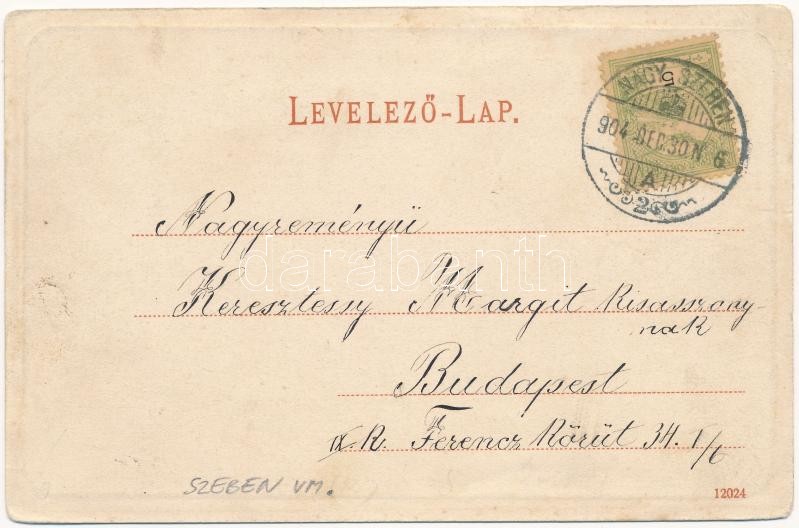 LEVELEZŐ-LAP.
NAGY-SZEBEN
5
904 DEC. 30 N 6
A
2
Nagyreményü
Keresztessy Margit kisasszony-
nak
Budapest
IX. k. Ferencz Körút 34. I/6
darabanth
SZEBEN VM.
12024